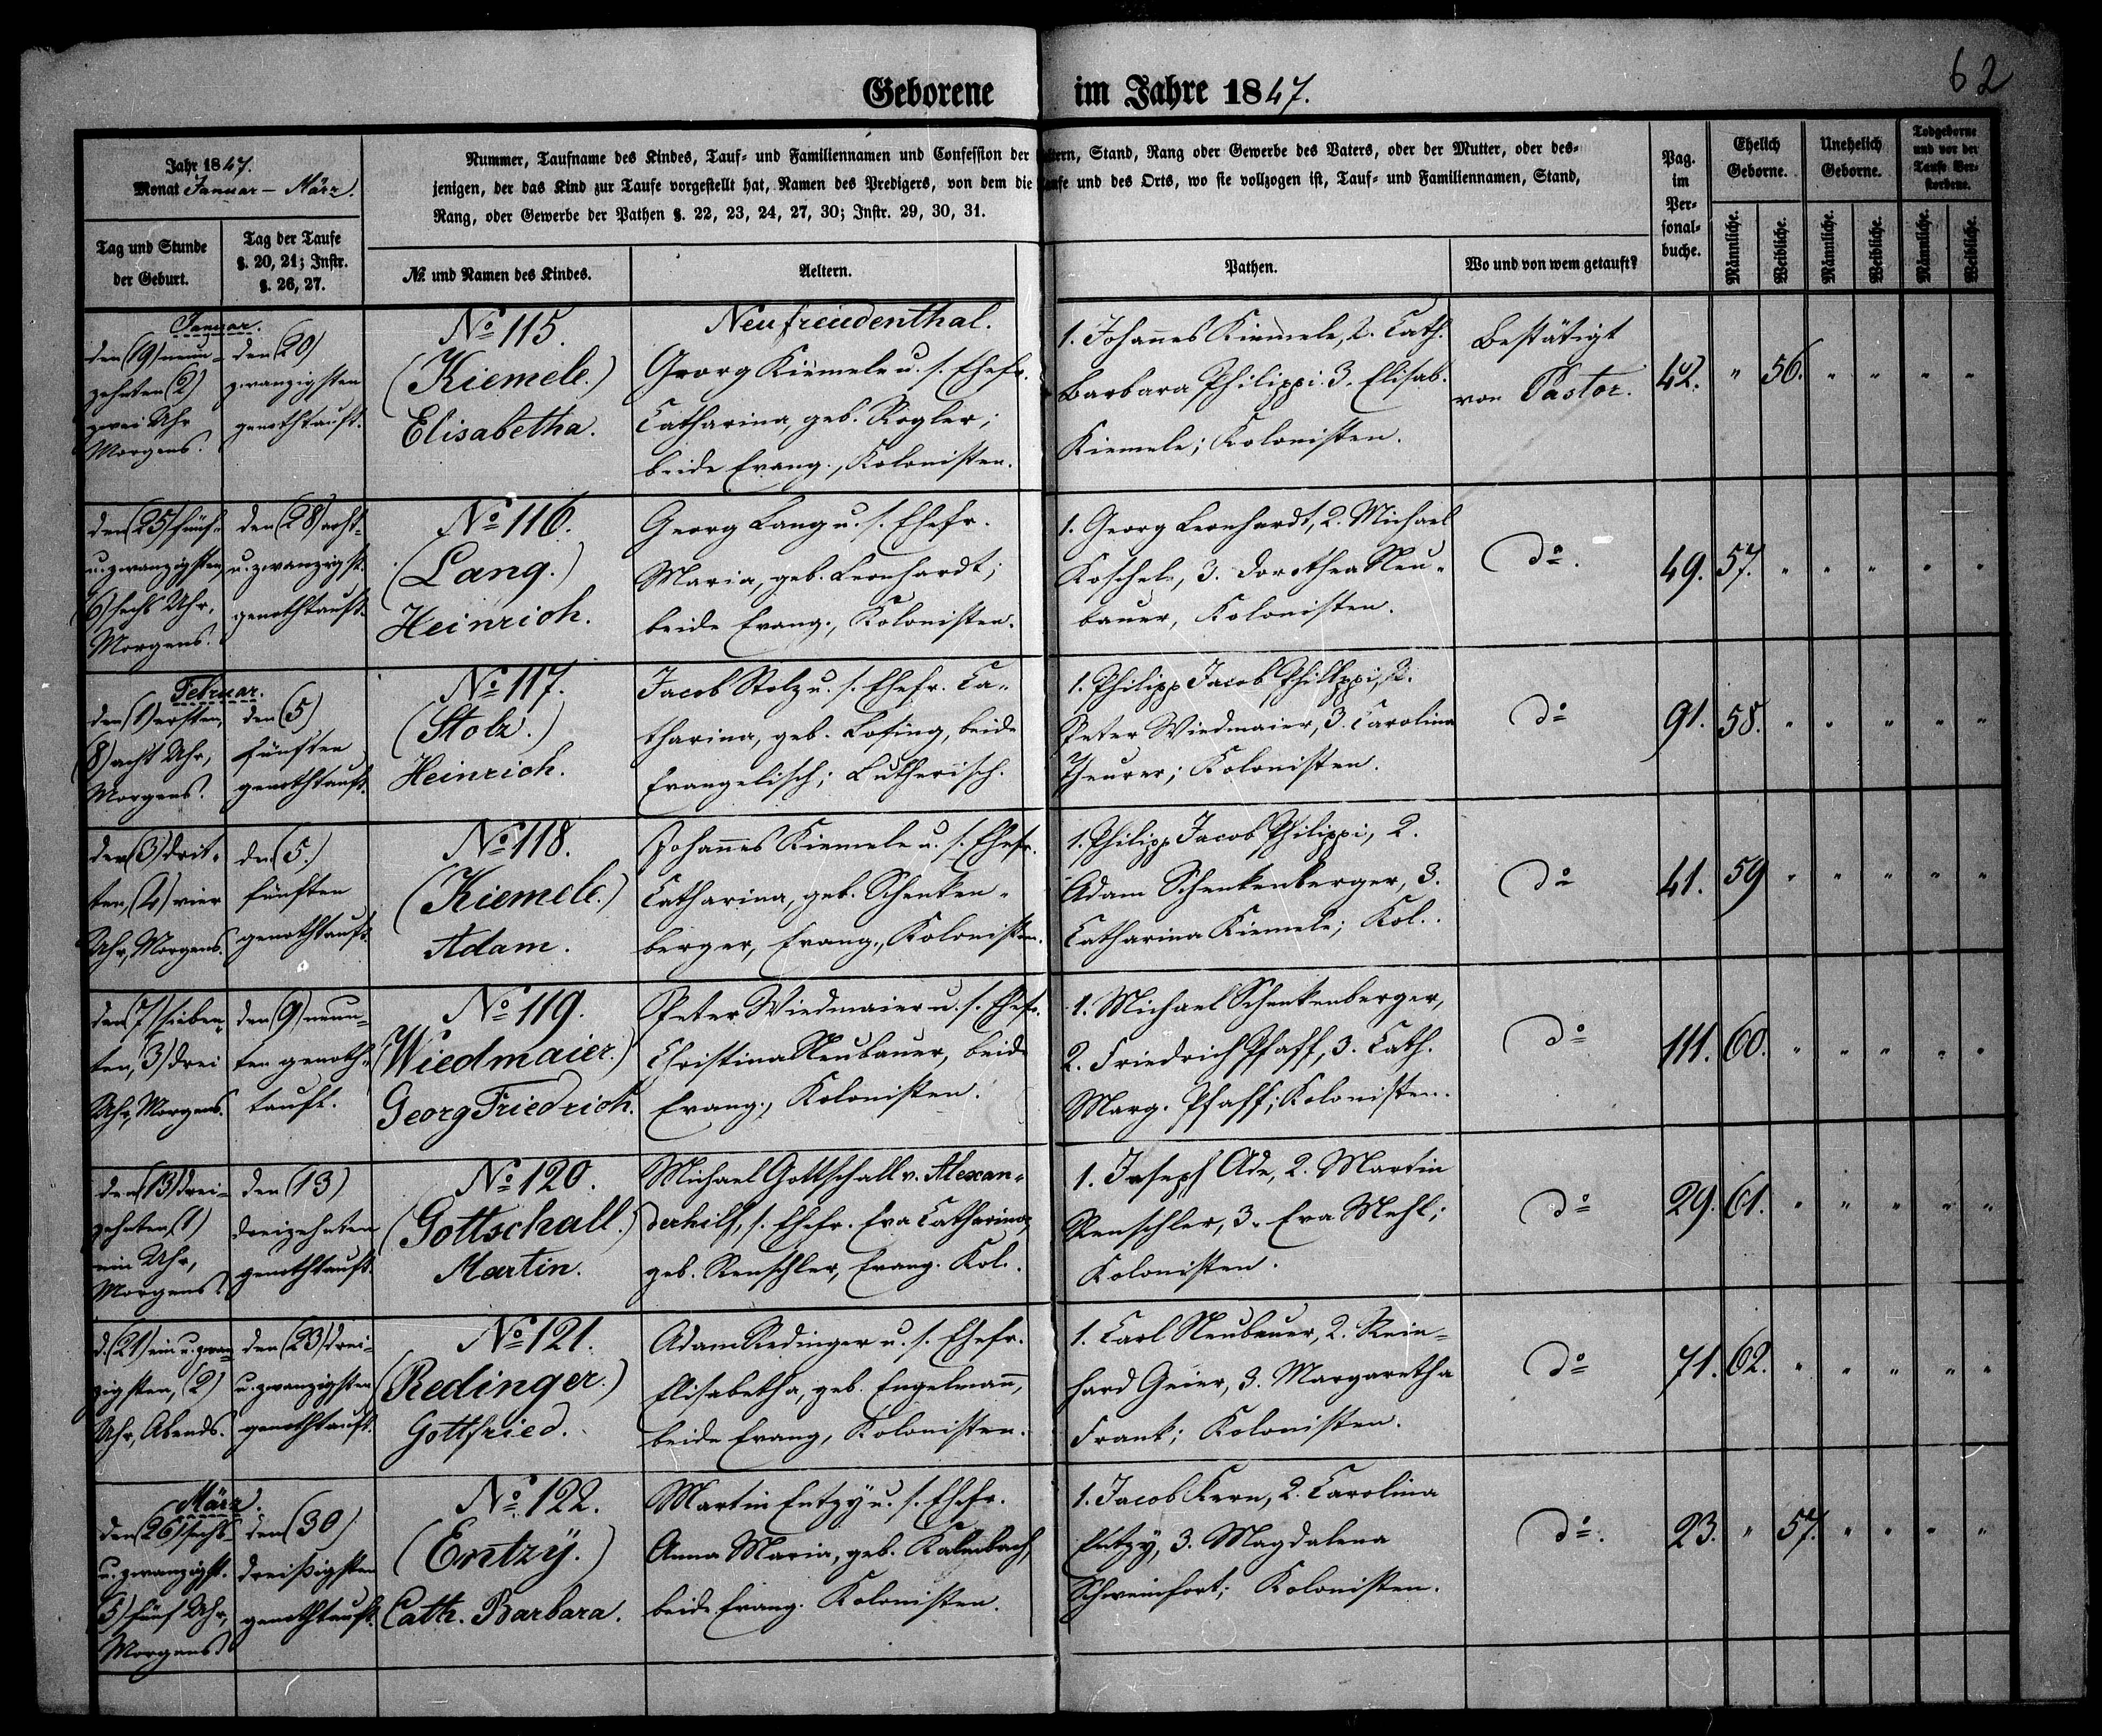 62
Geborene im Jahre 1847.
Jahr 1847.
Monat Januar – März.
Nummer, Taufname des Kindes, Tauf- und Familiennamen und Confession der Aeltern, Stand, Rang oder Gewerbe des Vaters, oder der Mutter, oder des-
jenigen, der das Kind zur Taufe vorgestellt hat, Namen des Predigers, von dem die Taufe und des Orts, wo sie vollzogen ist, Tauf- und Familiennamen, Stand,
Rang, oder Gewerbe der Pathen §. 22, 23, 24, 27, 30; Instr. 29, 30, 31.
Pag.
im
Per-
sonal-
buche.
Ehelich
Geborne.
Unehelich
Geborne.
Todgeborne
und vor der
Taufe Ver-
storbene.
Tag und Stunde
der Geburt.
Tag der Taufe
§. 20, 21; Instr.
§. 26, 27.
№ und Namen des Kindes.
Aeltern.
Pathen.
Wo und von wem getauft?
Männliche.
Weibliche.
Männliche.
Weibliche.
Männliche.
Weibliche.
Januar.
den (19) neun-
zehnten (2)
zwei Uhr
Morgens.
den (20)
zwanzigsten
genothtauft.
No 115.
(Kiemele.)
Elisabetha.
Neufreudenthal.
Georg Kiemele u. s. Ehefr.
Catharina, geb. Rogler;
beide Evang., Kolonisten.
1. Johannes Kiemele, 2. Cath.
Barbara Philippi. 3. Elisab.
Kiemele; Kolonisten.
Bestätigt
von Pastor.
42. " 56. " " " "
den (25) fünf-
u. zwanzigsten,
(6) sechs Uhr,
Morgens.
den (28) acht-
u. zwanzigst.
genothtauft.
No 116.
(Lang.)
Heinrich.
Georg Lang u. s. Ehefr.
Maria, geb. Leonhardt;
beide Evang., Kolonisten.
1. Georg Leonhardt, 2. Michael
Koschele, 3. Dorothea Neu-
bauer, Kolonisten.
do.
49. 57. " " " " "
Februar.
den (1) ersten,
(8) acht Uhr,
Morgens.
den (5)
fünften
genothtauft.
No 117.
(Stolz.)
Heinrich.
Jacob Stolz u. s. Ehefr. Ca-
tharina, geb. Losing, beide
Evangelisch; Lutherisch.
1. Philipp Jacob Philippi, 2.
Peter Wiedmaier, 3. Carolina
Theurer; Kolonisten.
do
91. 58. " " " " "
den (3) drit-
ten, (4) vier
Uhr, Morgens.
den (5.)
fünften
genothtauft.
No 118.
(Kiemele.)
Adam.
Johannes Kiemele u. s. Ehefr.
Catharina, geb. Schenken-
berger, Evang., Kolonisten.
1. Philipp Jacob Philippi, 2.
Adam Schenkenberger, 3.
Catharina Kiemele; Kol.
do
41. 59 " " " " "
den (7) sieben-
ten, (3) drei
Uhr, Morgens.
den (9) neun-
ten genoth-
tauft.
No 119.
(Wiedmaier.)
Georg Friedrich.
Peter Wiedmaier u. s. Ehefr.
Christina Neubauer, beide
Evang., Kolonisten.
1. Michael Schenkenberger,
2. Friedrich Pfaff, 3. Cath.
Marg. Pfaff; Kolonisten.
do
111. 60. " " " " "
den (13) drei-
zehnten (1)
ein Uhr,
Morgens.
den (13)
dreizehnten
genothtauft.
No 120.
(Gottschall.)
Martin.
Michael Gottschall v. Alexan-
derhilf, s. Ehefr. Eva Catharina,
geb. Renschler, Evang. Kol.
1. Joseph Ade, 2. Martin
Renschler, 3. Eva Mehl;
Kolonisten.
do
29. 61. " " " " "
d. (21) ein u. zwan-
zigsten, (2)
Uhr, Abends.
den (23) drei-
u. zwanzigsten
genothtauft.
No 121.
(Redinger.)
Gottfried.
Adam Redinger u. s. Ehefr.
Elisabetha, geb. Engelmann,
beide Evang, Kolonisten.
1. Carl Neubauer, 2. Rein-
hard Geier, 3. Margaretha
Frank; Kolonisten.
do
71. 62. " " " " "
März.
den (26) sechs-
u. zwanzigst.
(5) fünf Uhr,
Morgens
den (30)
dreißigsten
genothtauft.
No 122.
(Entzÿ.)
Cath. Barbara.
Martin Entzÿ u. s. Ehefr.
Anna Maria, geb. Kalmbach,
beide Evang. Kolonisten.
1. Jacob Kern, 2. Carolina
Entzy, 3. Magdalena
Schweinfort; Kolonisten.
do.
23. " 57. " " " "